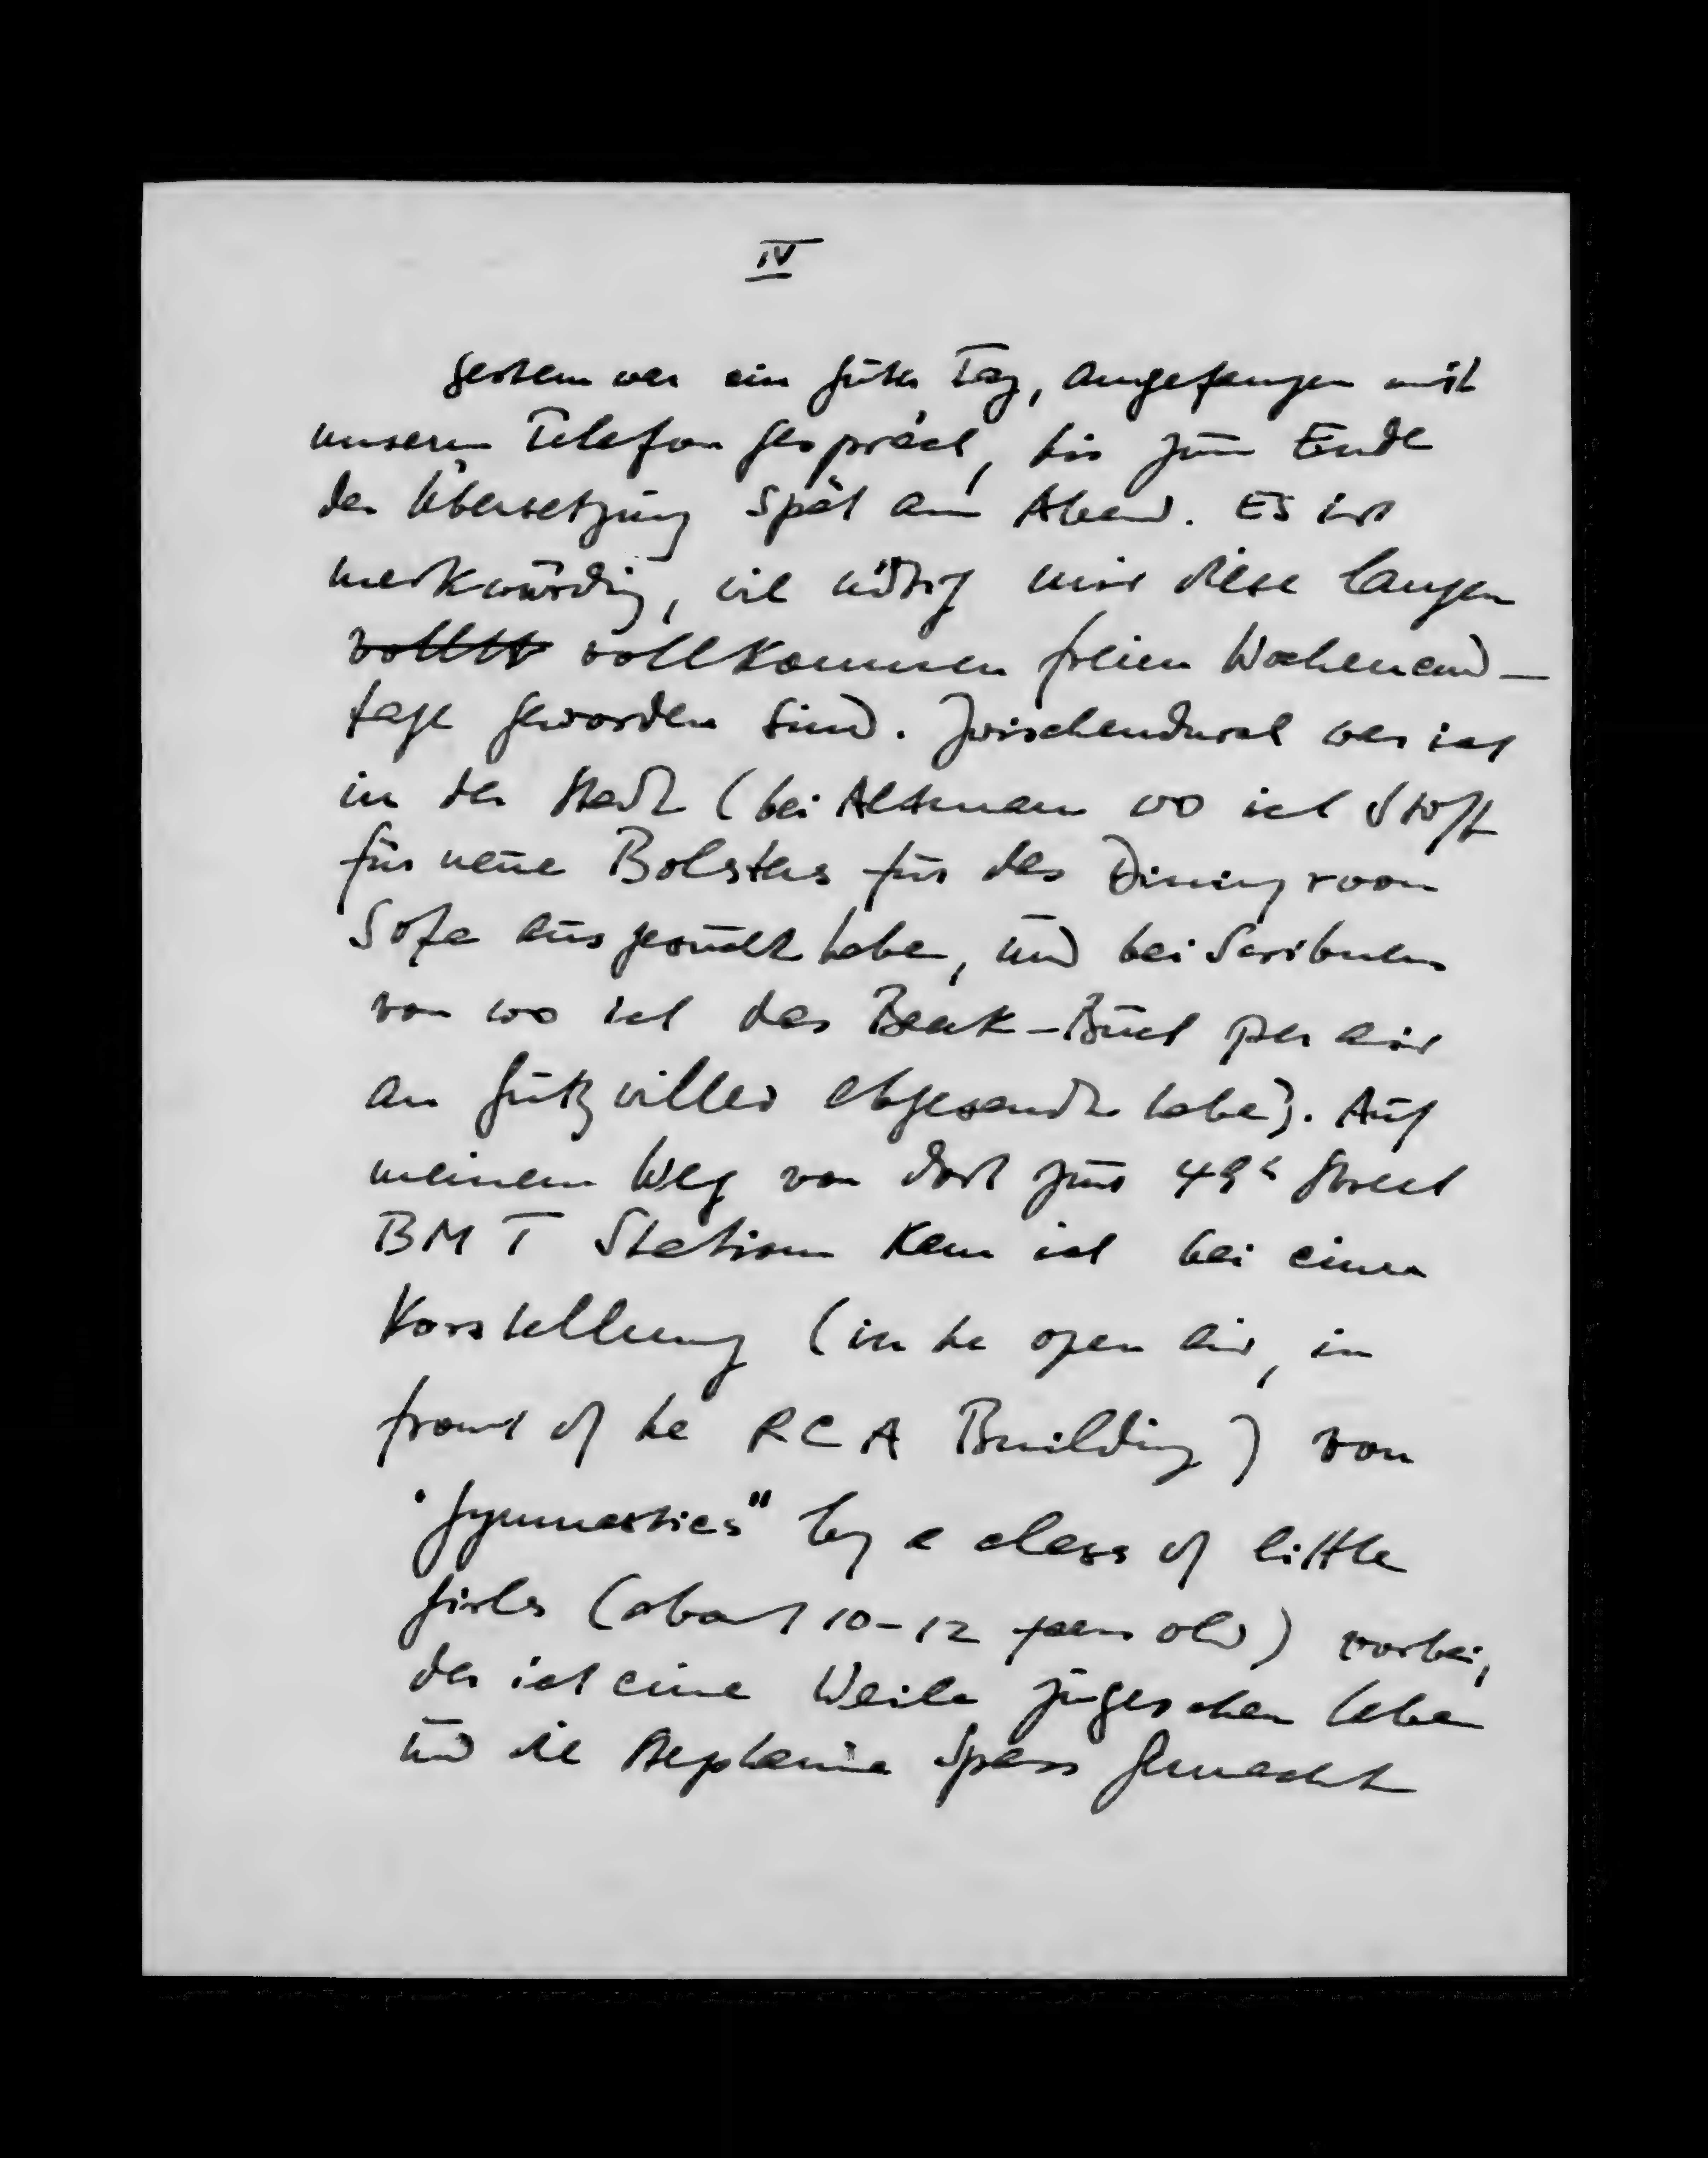 IV
Gestern war ein guter Tag, angefangen mit
unserm Telefon gespräch, bis zum Ende
der Übersetzung spät am Abend. Es ist
merkwürdig, wie nötig mir diese langen
vollkommen freien Wochenend-
tage geworden sind. Zwischendurch war ich
in der Stadt (bei Altman wo ich Stoff
für neue Bolsters für das Dining room
Sofa ausgesucht habe, und bei Scribners
von wo ich das Beck-Buch per air
an Gutzwiller abgesandt habe). Auf
meinem Weg von dort zur 49th Street
BMT Station kam ich bei einer
Vorstellung (in the open air, in
front of the RCA Building) von
"Gymnastics" by a class of little
girls (about 10-12 years old) vorbei,
der ich eine Weile zugesehen habe
und die Stephanie Spass gemacht